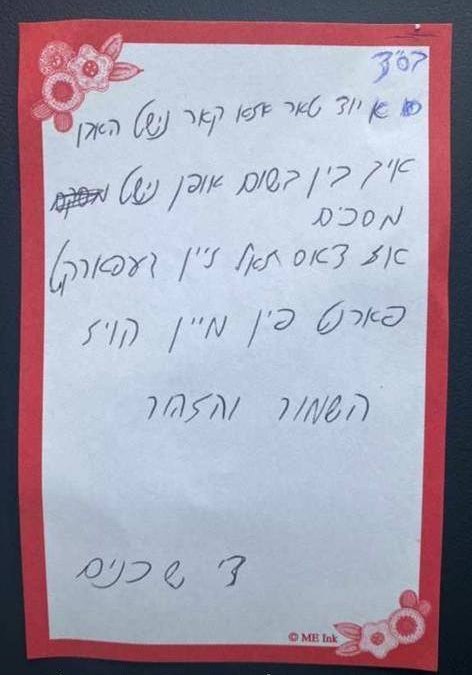 בס"ד
א יוד טאר אזא קאר נישט האבן
איך בין בשום אופן נישט
מסכים
אז דאס זאל זיין געפארקט
פארנט פין מיין הויז
השמור והזהר
די שכנים
© ME Ink